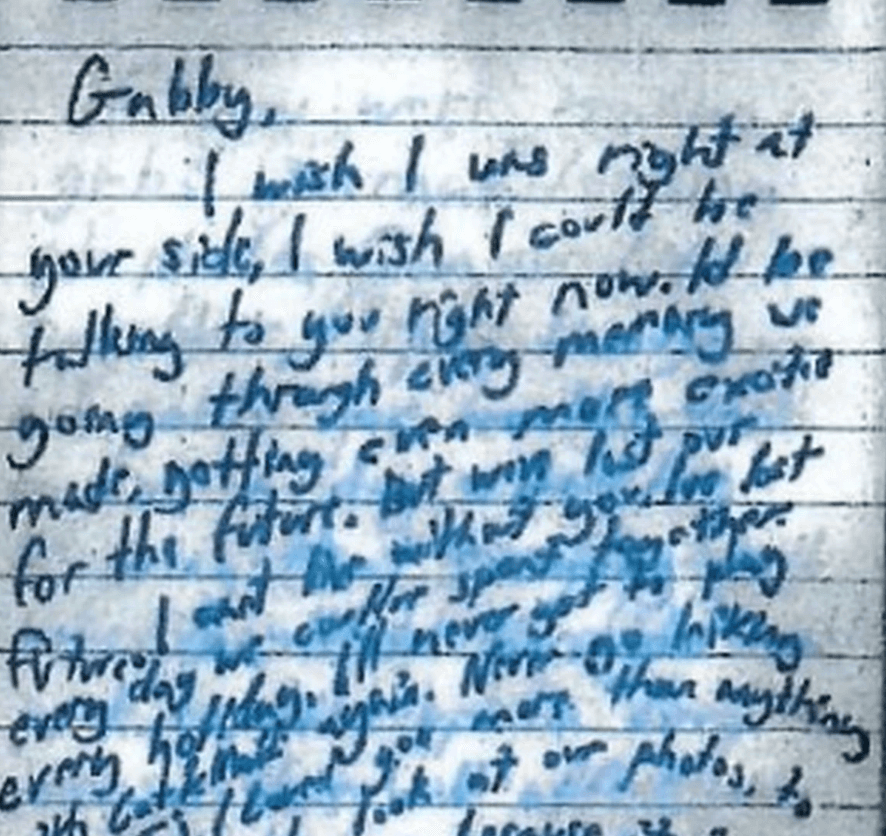 Gabby,
I wish I was right at
your side, I wish I could be
talking to you right now. Id be
going through every memory we
made, getting even more excited
for the future. But we've lost our
future. I can't live without you. I've lost
every day we could've spent together
every holiday. I'll never get to play
again. Never go hiking
I loved you more than anything
look at our photos, to
because